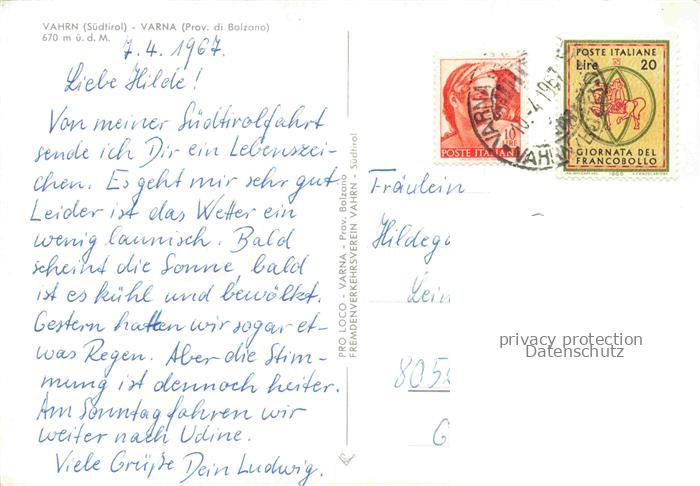 VAHRN (Südtirol) - VARNA (Prov. di Bolzano)
670 m ü. d. M.
7.4.1967.
Liebe Hilde!
Von meiner Südtirolfahrt
sende ich Dir ein Lebenszei-
chen. Es geht mir sehr gut
Leider ist das Wetter ein
wenig launisch. Bald
scheint die Sonne, bald
ist es kühl und bewölkt.
Gestern hatten wir sogar et-
was Regen. Aber die Stim-
mung ist dennoch heiter.
Am Sonntag fahren wir
weiter nach Udine.
Viele Grüße Dein Ludwig.
PRO LOCO - VARNA - Prov. Bolzano
FREMDENVERKEHRSVEREIN VAHRN - Südtirol
10
LIRE
POSTE ITALIANE
VARNA
VAHRN
POSTE ITALIANE
Lire 20
GIORNATA DEL
FRANCOBOLLO
1966
Fräulein
Hildeg
805
G
privacy protection
Datenschutz